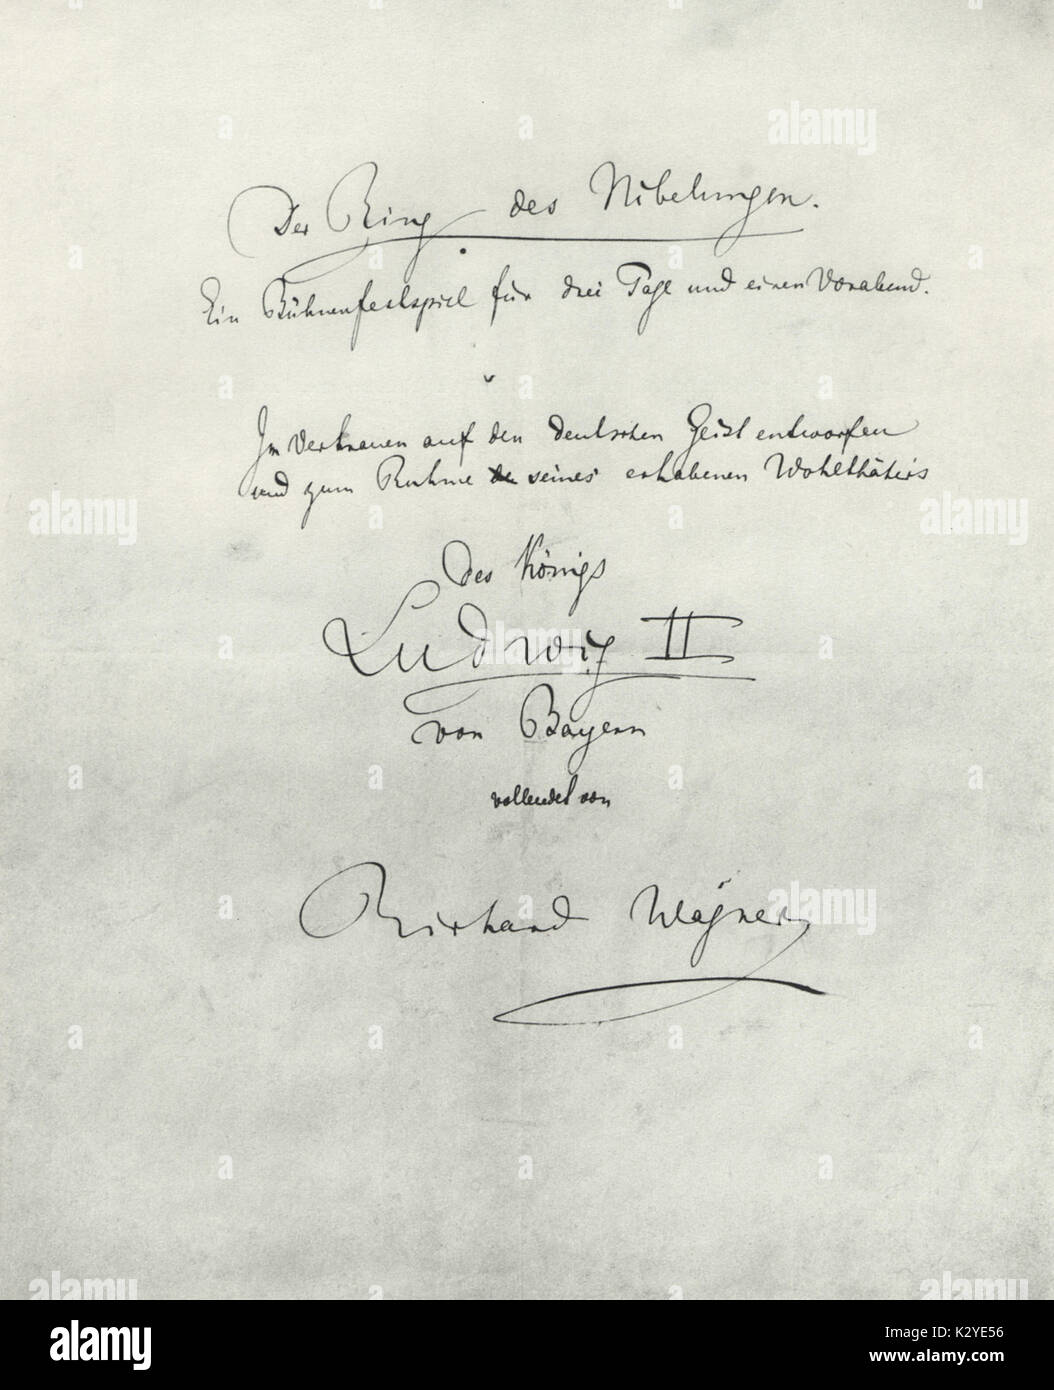 Der Ring des Nibelungen.
Ein Bühnenfestspiel für drei Tage und einen Vorabend.
Im Vertrauen auf den deutschen Geist entworfen
und zum Ruhme seines erhabenen Wohlthäters
des Königs
Ludwig II
von Bayern
vollendet von
Richard Wagner
alamy
alamy
Image ID: K2YE56
www.alamy.com